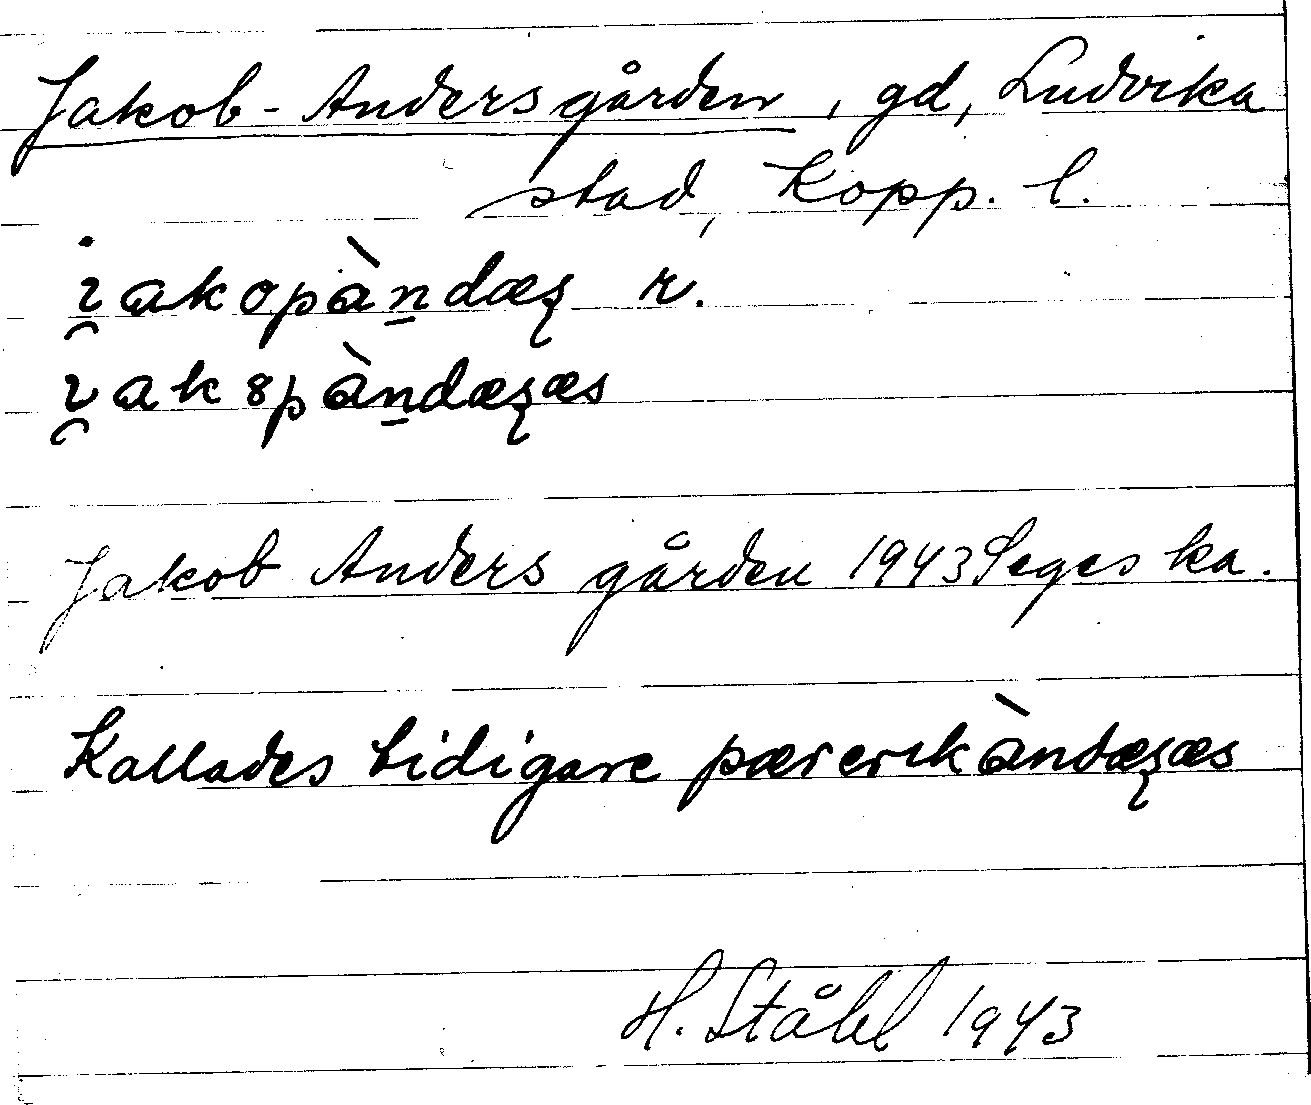 Jakob-Andersgården, gd, Ludvika
stad, Kopp. l.
i̯akopàn̠dæʂ r.
ɩ̯ak8pàn̠dæʂæs
Jakob Anders gården 1943 Seges ka.
Kallades tidigare pærerɩkàndæʂæs
H. Ståhl 1943